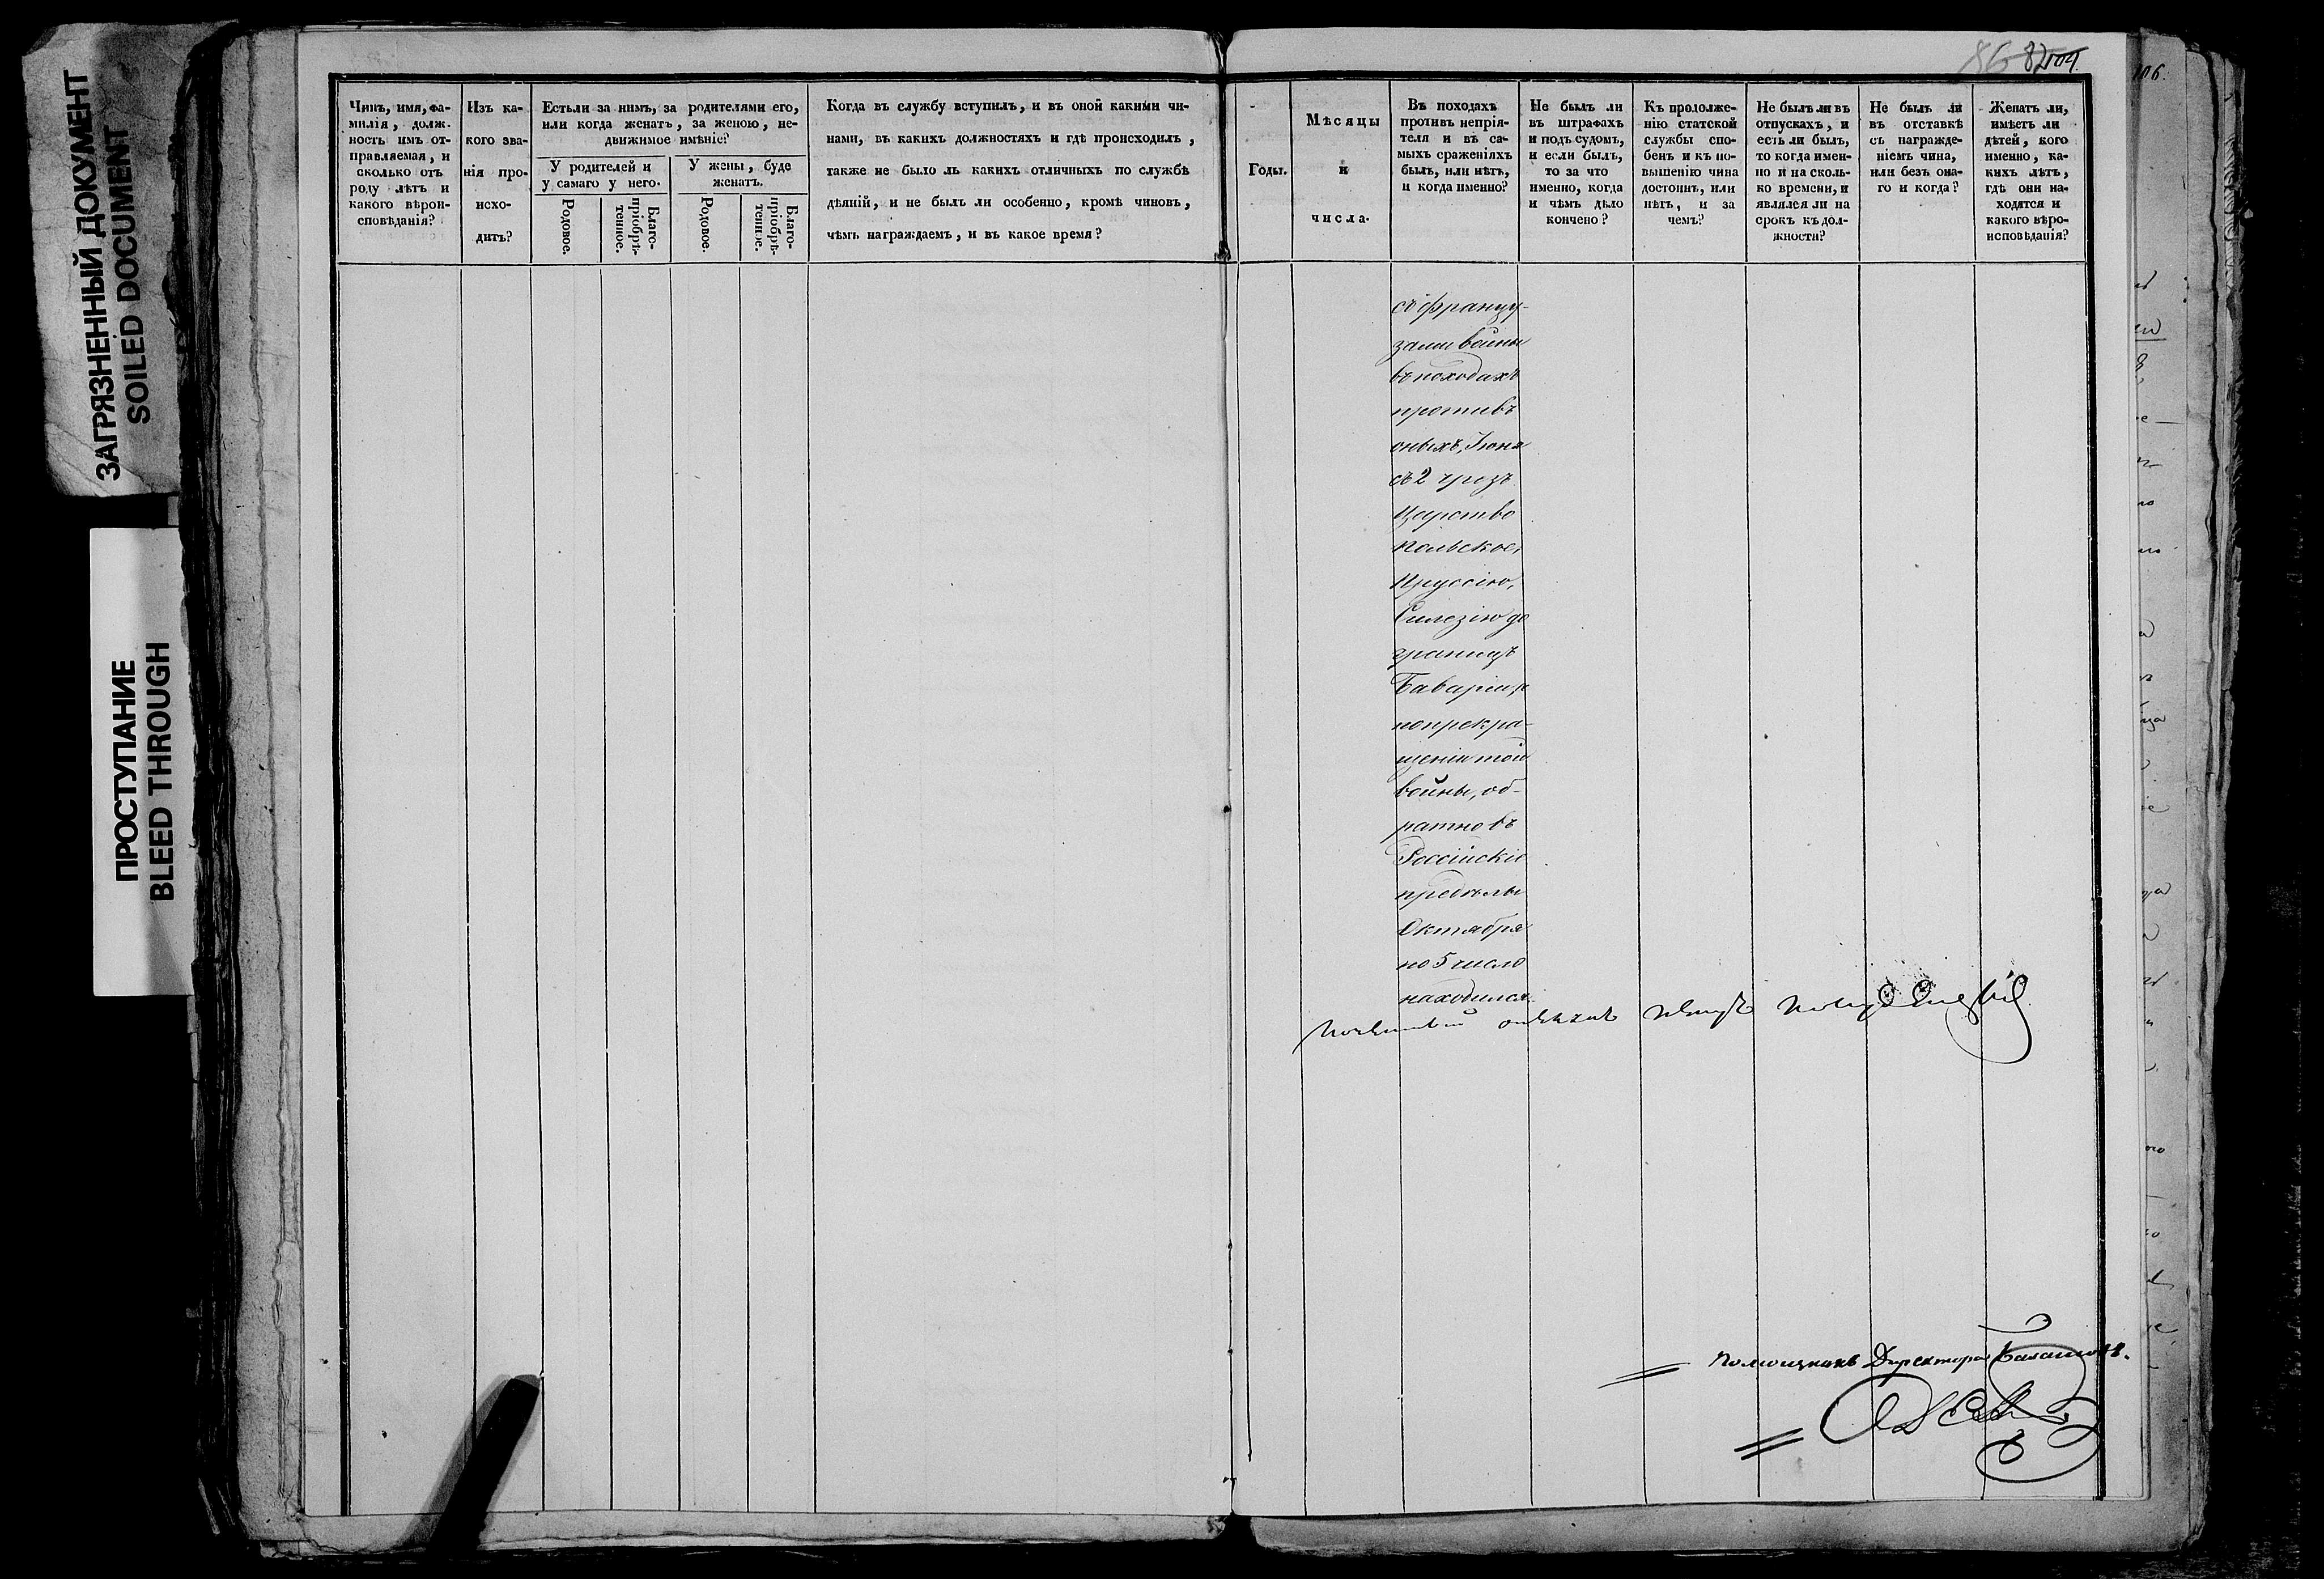 ЗАГРЯЗНЕННЫЙ ДОКУМЕНТ
SOILED DOCUMENT
ПРОСТУПАНИЕ
BLEED THROUGH
86 82 104.
106.
Чинъ, имя, фа-
милія, долж-
ность имъ от-
правляемая, и
сколько отъ
роду лѣтъ и
какого вѣрои-
сповѣданія?
Изъ ка-
кого зва-
нія про-
исхо-
дитъ?
Естьли за нимъ, за родителями его,
или когда женатъ, за женою, не-
движимое имѣніе?
У родителей и
у самаго у него.
У жены, буде
женатъ.
Родовое.
Благо-
пріобрѣ-
тенное.
Родовое.
Благо-
пріобрѣ-
тенное.
Когда въ службу вступилъ, и въ оной какими чи-
нами, въ какихъ должностяхъ и гдѣ происходилъ,
также не было ль какихъ отличныхъ по службѣ
дѣяній, и не былъ ли особенно, кромѣ чиновъ,
чѣмъ награждаемъ, и въ какое время?
Годы.
Мѣсяцы
и
числа.
Въ походахъ
противъ непрія-
теля и въ са-
мыхъ сраженіяхъ
былъ, или нѣтъ,
и когда именно?
Не былъ ли
въ штрафахъ
и подъ судомъ,
и если былъ,
то за что
именно, когда
и чѣмъ дѣло
кончено?
Къ продолже-
нію статской
службы спо-
бенъ и къ по-
вышенію чина
достоинъ, или
нѣтъ, и за
чемъ?
Не былъ ли въ
отпускахъ, и
есть ли былъ,
то когда имен-
но и на сколь-
ко времени, и
являлся ли на
срокъ къ дол-
жности?
Не былъ ли
въ отставкѣ
съ награжде-
ніемъ чина,
или безъ она-
го и когда?
Женатъ ли,
имѣетъ ли
дѣтей, кого
именно, ка-
кихъ лѣтъ,
гдѣ они на-
ходятся и
какого вѣро-
исповѣданія?
съ францу-
зами войны
въ походахъ
противъ
оныхъ, Іюня
съ 2 чрезъ
Царство
Польское,
Пруссію,
Силезію до
границъ
Баваріи, и
по прекра-
щеніи той
войны, об-
ратно въ
Россійскіе
предѣлы
Октября
по 5 число
находился.
Помощникъ Директора Балашовъ.